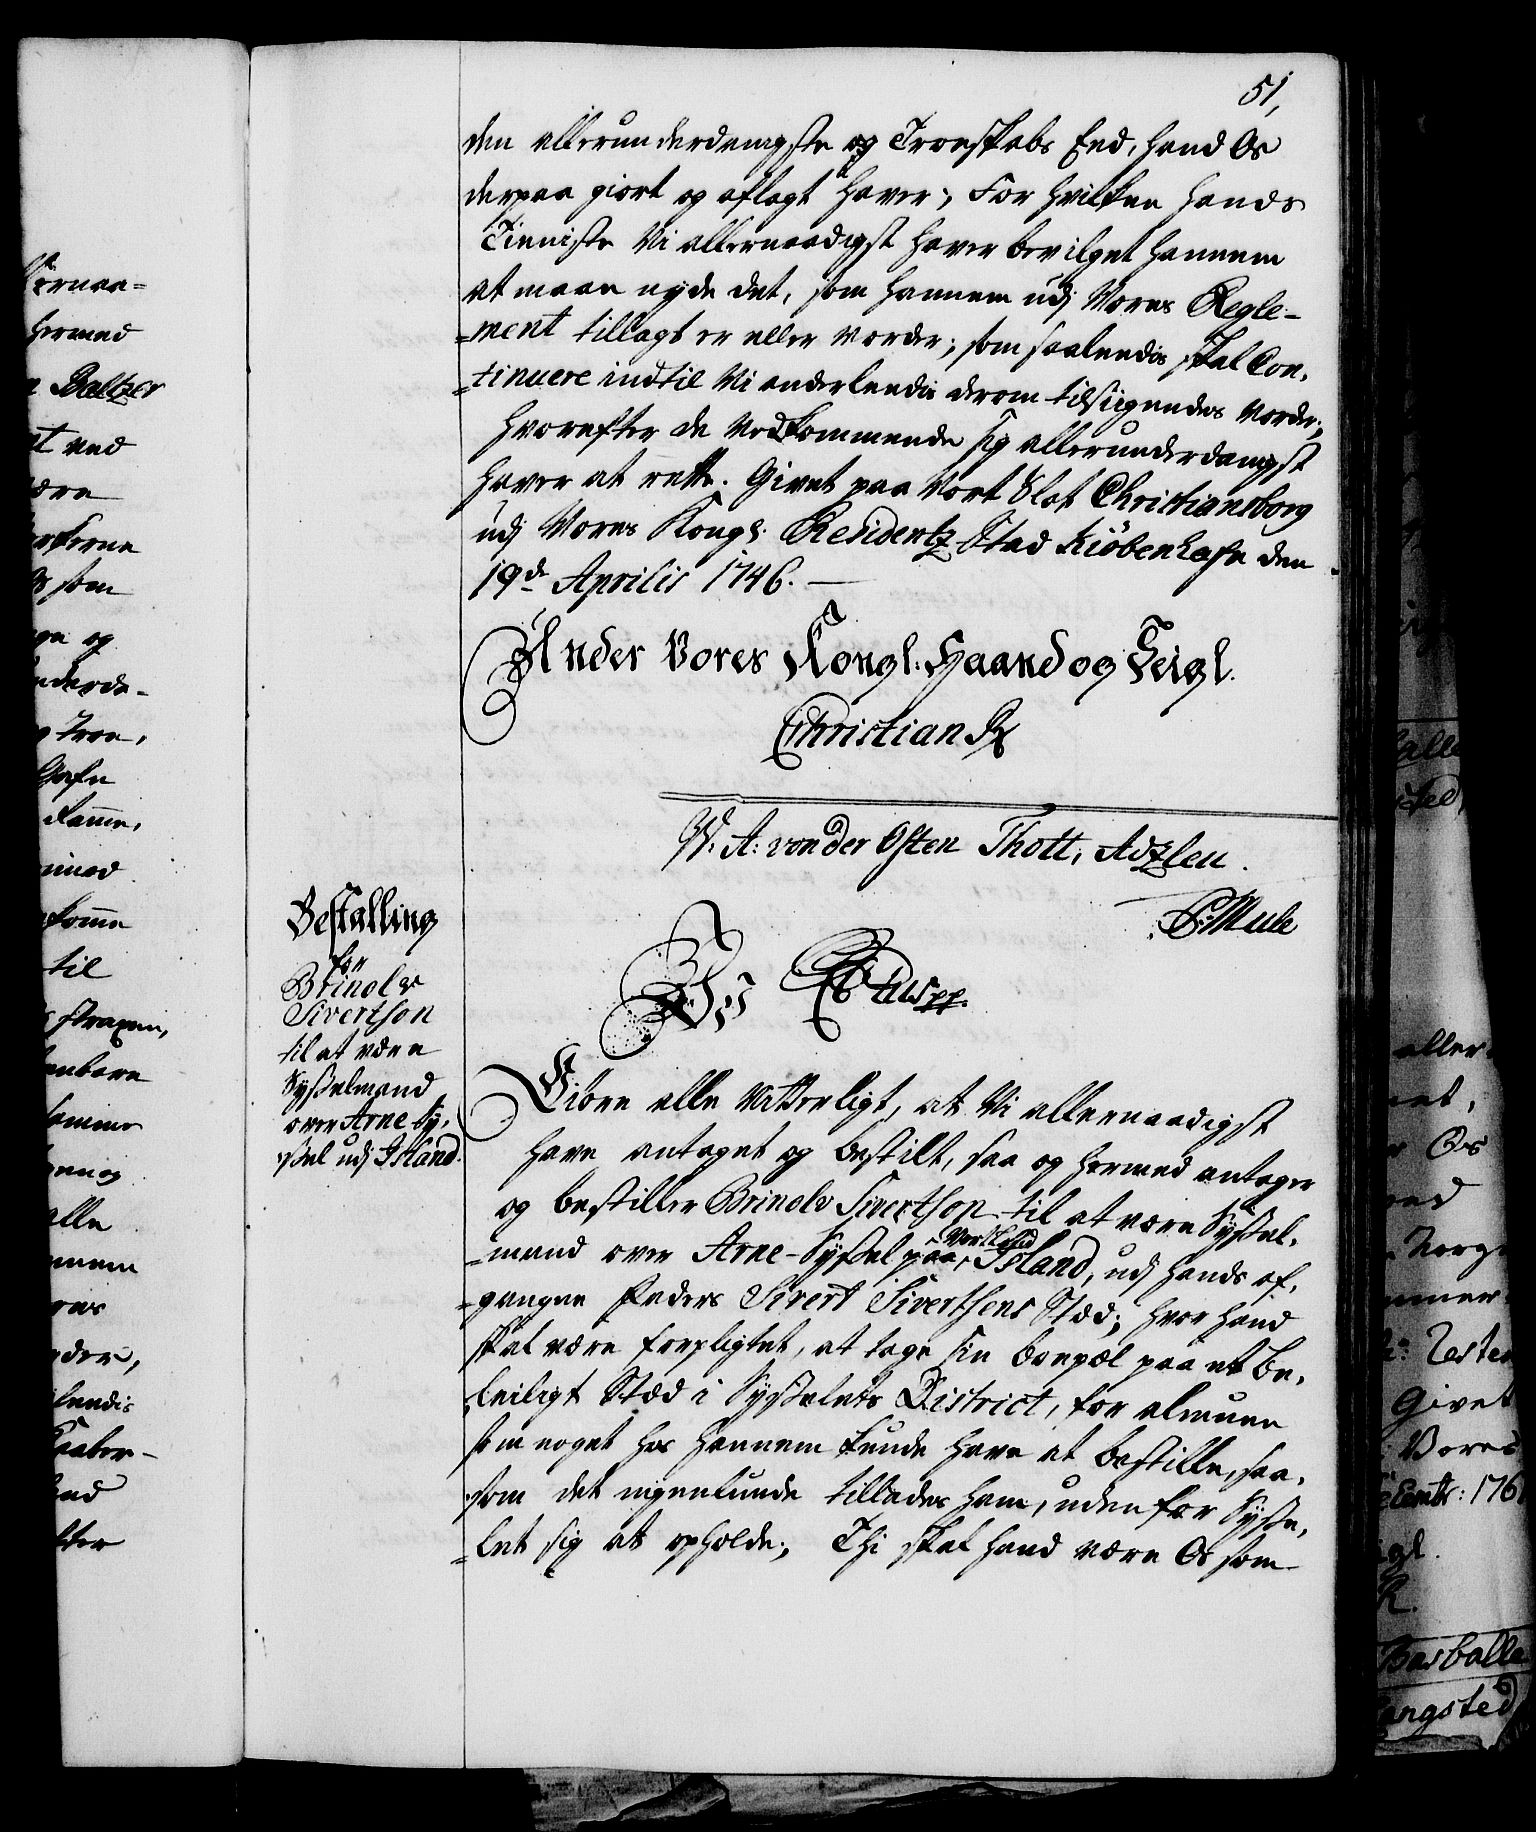 51,
den allerunderdanigste og Troeskabs Eed, hand Os
derpaa giort og aflagt haver; For hvilken hands
Tieniste Vi allernaadigst haver bevilget hannem
at maae nyde det, som hannem udj Vores Regle-
-ment tillagt er eller vorder; som saaledis skal Con-
-tinuere indtil Vi anderledis derom tilsigendes vorder;
hvorefter de Vedkommende sig allerunderdanigst
haver at rette. Givet paa Vort Slot Christiansborg
udj Vores Kongl. Residentz Stad Kiöbenhafn den
19de Aprilis 1746.
Under Vores Kongl. Haand og Seigl.
Christian R
W. A: von der Osten Thott, Adzlen.
P: Mule
Bestalling
for
Brinolv
Sivertson
til at være
Sysselmand
over Arne Sy-
ssel udj Island.
Vj Ch: 6tus pp.
Giøre alle Vitterligt, at Vi allernaadigst
have antaget og bestilt, saa og hermed antager
og bestiller Brinolv Sivertson til at være Syssel-
-mand over Arne-Syssel paa Vort Land Island, udj hands af-
-gangne Faders Sivert Sivertsens Stæd; hvor hand
skal være forpligtet, at tage sin boepæl paa et be-
leiligt Stæd i Sysselets District, for almuen
som noget hos hannem kunde have at bestille, saa-
som det ingenlunde tillades ham, uden for Sysse-
-let sig at opholde; Thi skal hand være Os som